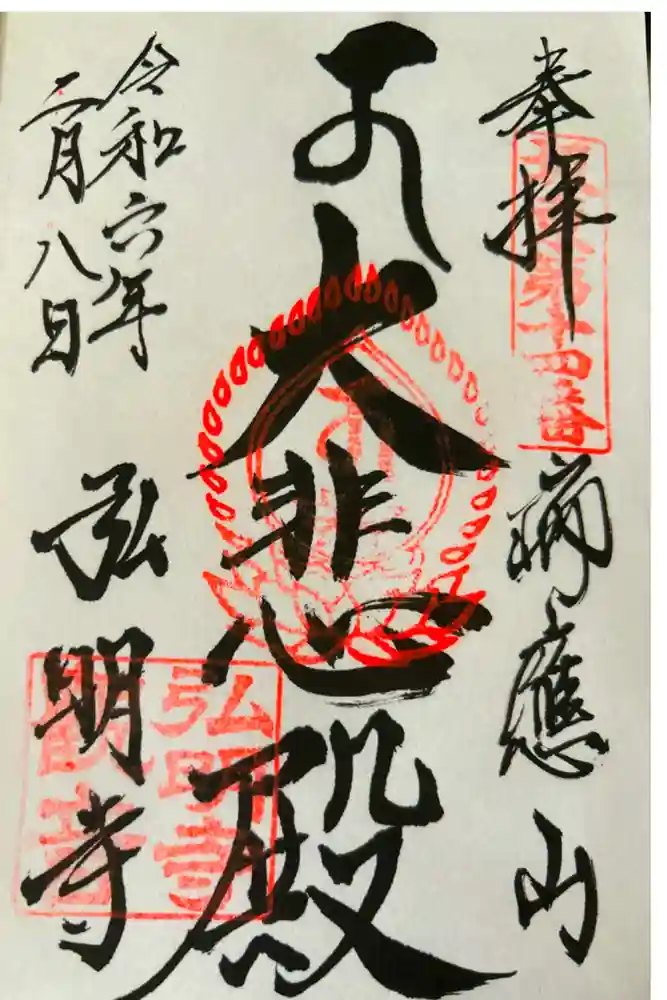 奉拝
坂東第十四番
瑞應山
大悲殿
令和六年
二月八日
弘明寺
弘明寺